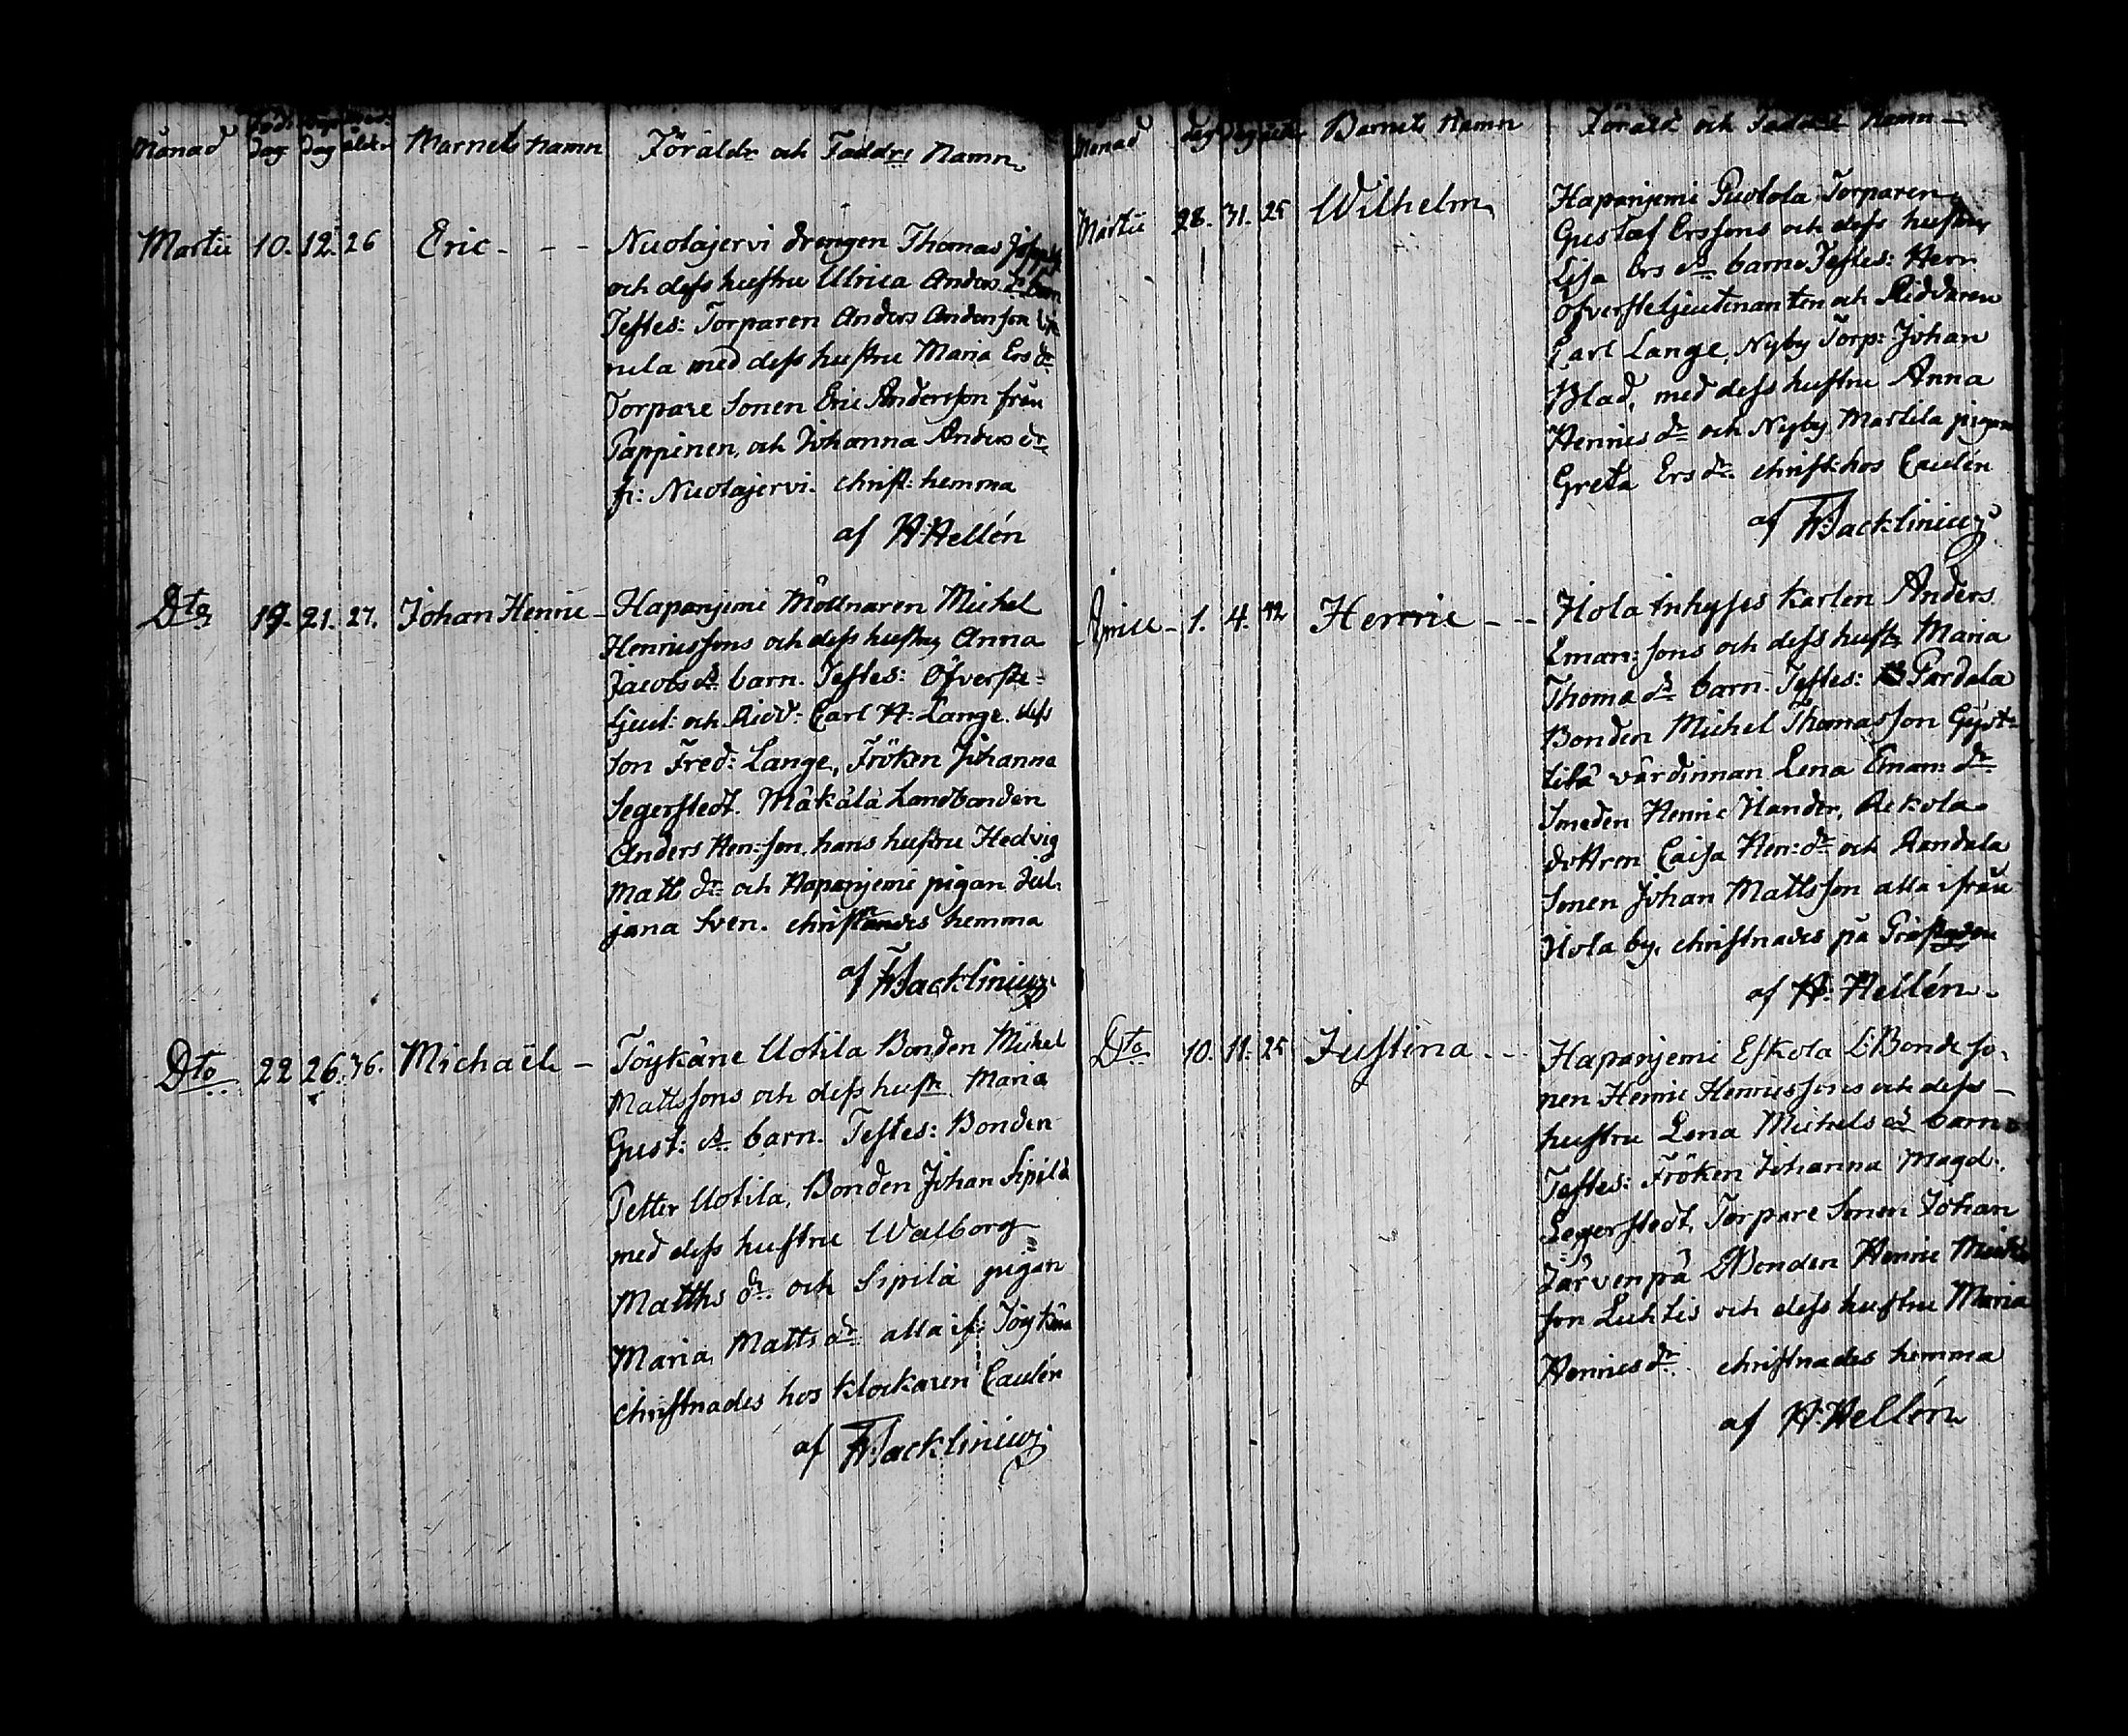 Månad Dag Dag ålder Barnets namn Föräldr och Faddrs Namn
Martii 10. 12. 26 Eric - - - Nuolajervi drengen Thomas
och dess hustru Ulrica Anders dr barn
Testes: Torparen Anders Andersson
nela med dess hustru Maria Ers dr
Torpare Sonen Eric Andersson från
Pappinen, och Johanna Anders dr
fr: Nuolajervi. christ: hemma
af H. Hellén
Dto 19. 21. 27. Johan Henric - Hapanjemi Möllnaren Michel
Henricssons och dess hustru Anna
Jacobs dr barn. Testes: Öfverste-
ljeut: och Ridd: Carl H: Lange. dess
Son Fred: Lange, Fröken Johanna
Segerstedt. Mäkälä Landbonden
Anders Hen: son. hans hustru Hedvig
Matts dr och Hapanjemi pigan Jul-
jana Sven. christnades hemma
af F. H. Backlinius
Dto 22 26. 36. Michaël - Töykäne Uotila Bonden Michel
Mattssons och dess hustr Maria
Gust: dr barn. Testes: Bonden
Petter Uotila, Bonden Johan Sipilä
med dess hustru Walborg
Matths dr. och Sipilä pigan
Maria Matts dr alla if: Töykäne
christnades hos klockaren Caulén
af F. H. Backlinius
Månad Dag Dag ålder Barnets Namn Föräld och Faddrs Namn -
Martii 28. 31. 25 Wilhelm Hapanjemi Puolola Torparen
Gustaf Erssons och dess hustru
Lisa Ers dr barn Testes: Herr
Öfversteljeutenanten och Riddaren
Carl Lange, Nyby Torp: Johan
Blad, med dess hustru Anna
Henrics dr och Nyby Martila pigan
Greta Ers dr. christ: hos Caulén
af F. H. Backlinius
Aprill - 1. 4. 42 Henric - - Hola Inhyses Karlen Anders
Eman: sons och dess hustr Maria
Thoma dr barn. Testes: Pardala
Bonden Michel Thomasson Gyst-
tilä värdinnan Lena Eman: dr
Smeden Henric Hander, Rekola
dottren Caisa Hen: dr och Randala
Sonen Johan Mattsson alla ifrån
Hola by, christnades på Prästgården
af H: Hellén.
Dto 10. 11. 25 Justina - - Hapanjemi Eskola L: Bonde so-
nen Henric Henricssons och dess
hustru Lena Michels dr barn
Testes: Fröken Johanna Magd:
Segerstedt, Torpare Sonen Johan
Järvenpä Bonden Henric Michels
son Luhtis och dess hustru Maria
Henrics dr christnades hemma
af H. Hellén